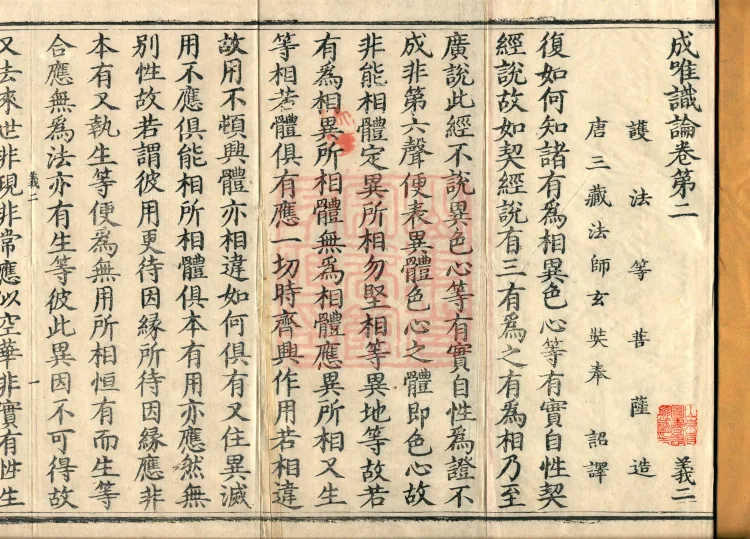 成唯識論卷第二 義二
護法等菩薩造
唐三藏法師玄奘奉 詔譯
復如何知諸有為相異色心等有實自性契
經說故如契經說有三有為之有為相乃至
廣說此經不說異色心等有實自性為證不
成非第六聲便表異體色心之體即色心故
非能相體定異所相勿堅相等異地等故若
有為相異所相體無為相體應異所相又生
等相若體俱有應一切時齊興作用若相違
故用不頓興體亦相違如何俱有又住異滅
用不應俱能相所相體俱本有用亦應然無
別性故若謂彼用更待因緣所待因緣應非
本有又執生等便為無用所相恒有而生等
合應無為法亦有生等彼此異因不可得故
義二 一
又去來世非現非常應似空華非實有性生